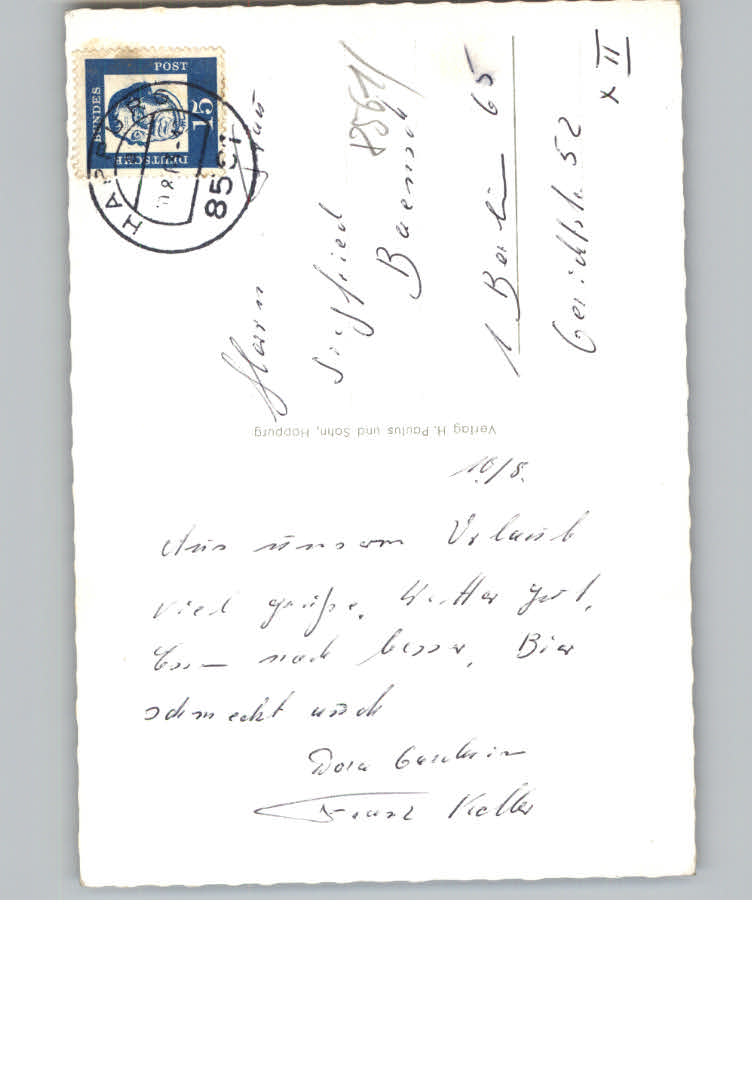 10/8.
Aus unserm Urlaub
viel grüße. Wetter gut,
Essen noch besser, Bier
schmeckt auch
Dora
Franz Keller
Verlag H. Paulus und Sohn, Happurg
Herrn
Siegfried
Baensch
1 Berlin 65
Gerichtstr. 52
X II
8561/
DEUTSCHE
BUNDES
POST
15